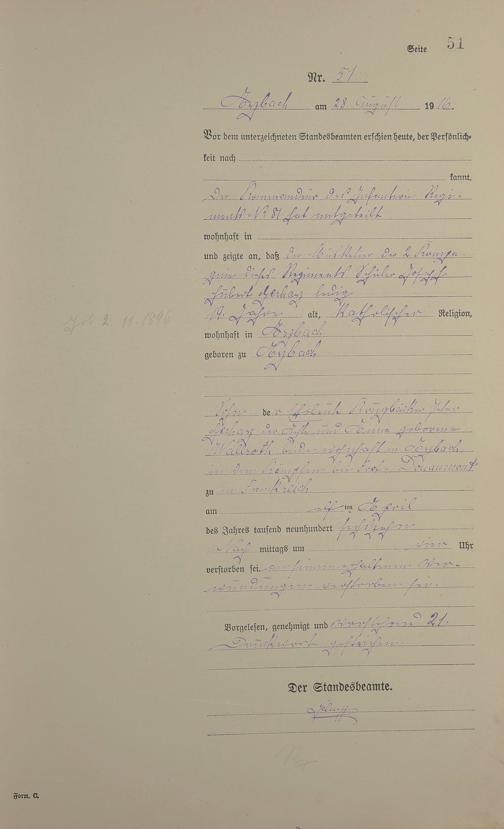 Seite 51
Nr. 51
am 28 August 1916.
Vor dem unterzeichneten Standesbeamten erschien heute, der Persönlich-
keit nach
kannt,
Der Kommandeur des Infanterie Regi-
ments No 81 hat mitgeteilt
wohnhaft in
und zeigte an, daß der Musketier der 2 Kompa-
gnie dieses Regiments Schüler Joseph
Hubert ledig
19 Jahre alt, katholischer Religion,
wohnhaft in
geboren zu
geb 2 11. 1896
Sohn der Eheleute
und Anna geborene
beide wohnhaft in
in den Kämpfen bei Fort Douaumont
zu in Frankreich
am im April
des Jahres tausend neunhundert sechzehn
mittags um vier Uhr
verstorben sei. an seinen erhaltenen Ver-
wundungen verstorben sei.
Vorgelesen, genehmigt und vorstehend 21
Druckworte gestrichen.
Der Standesbeamte.
Form. C.